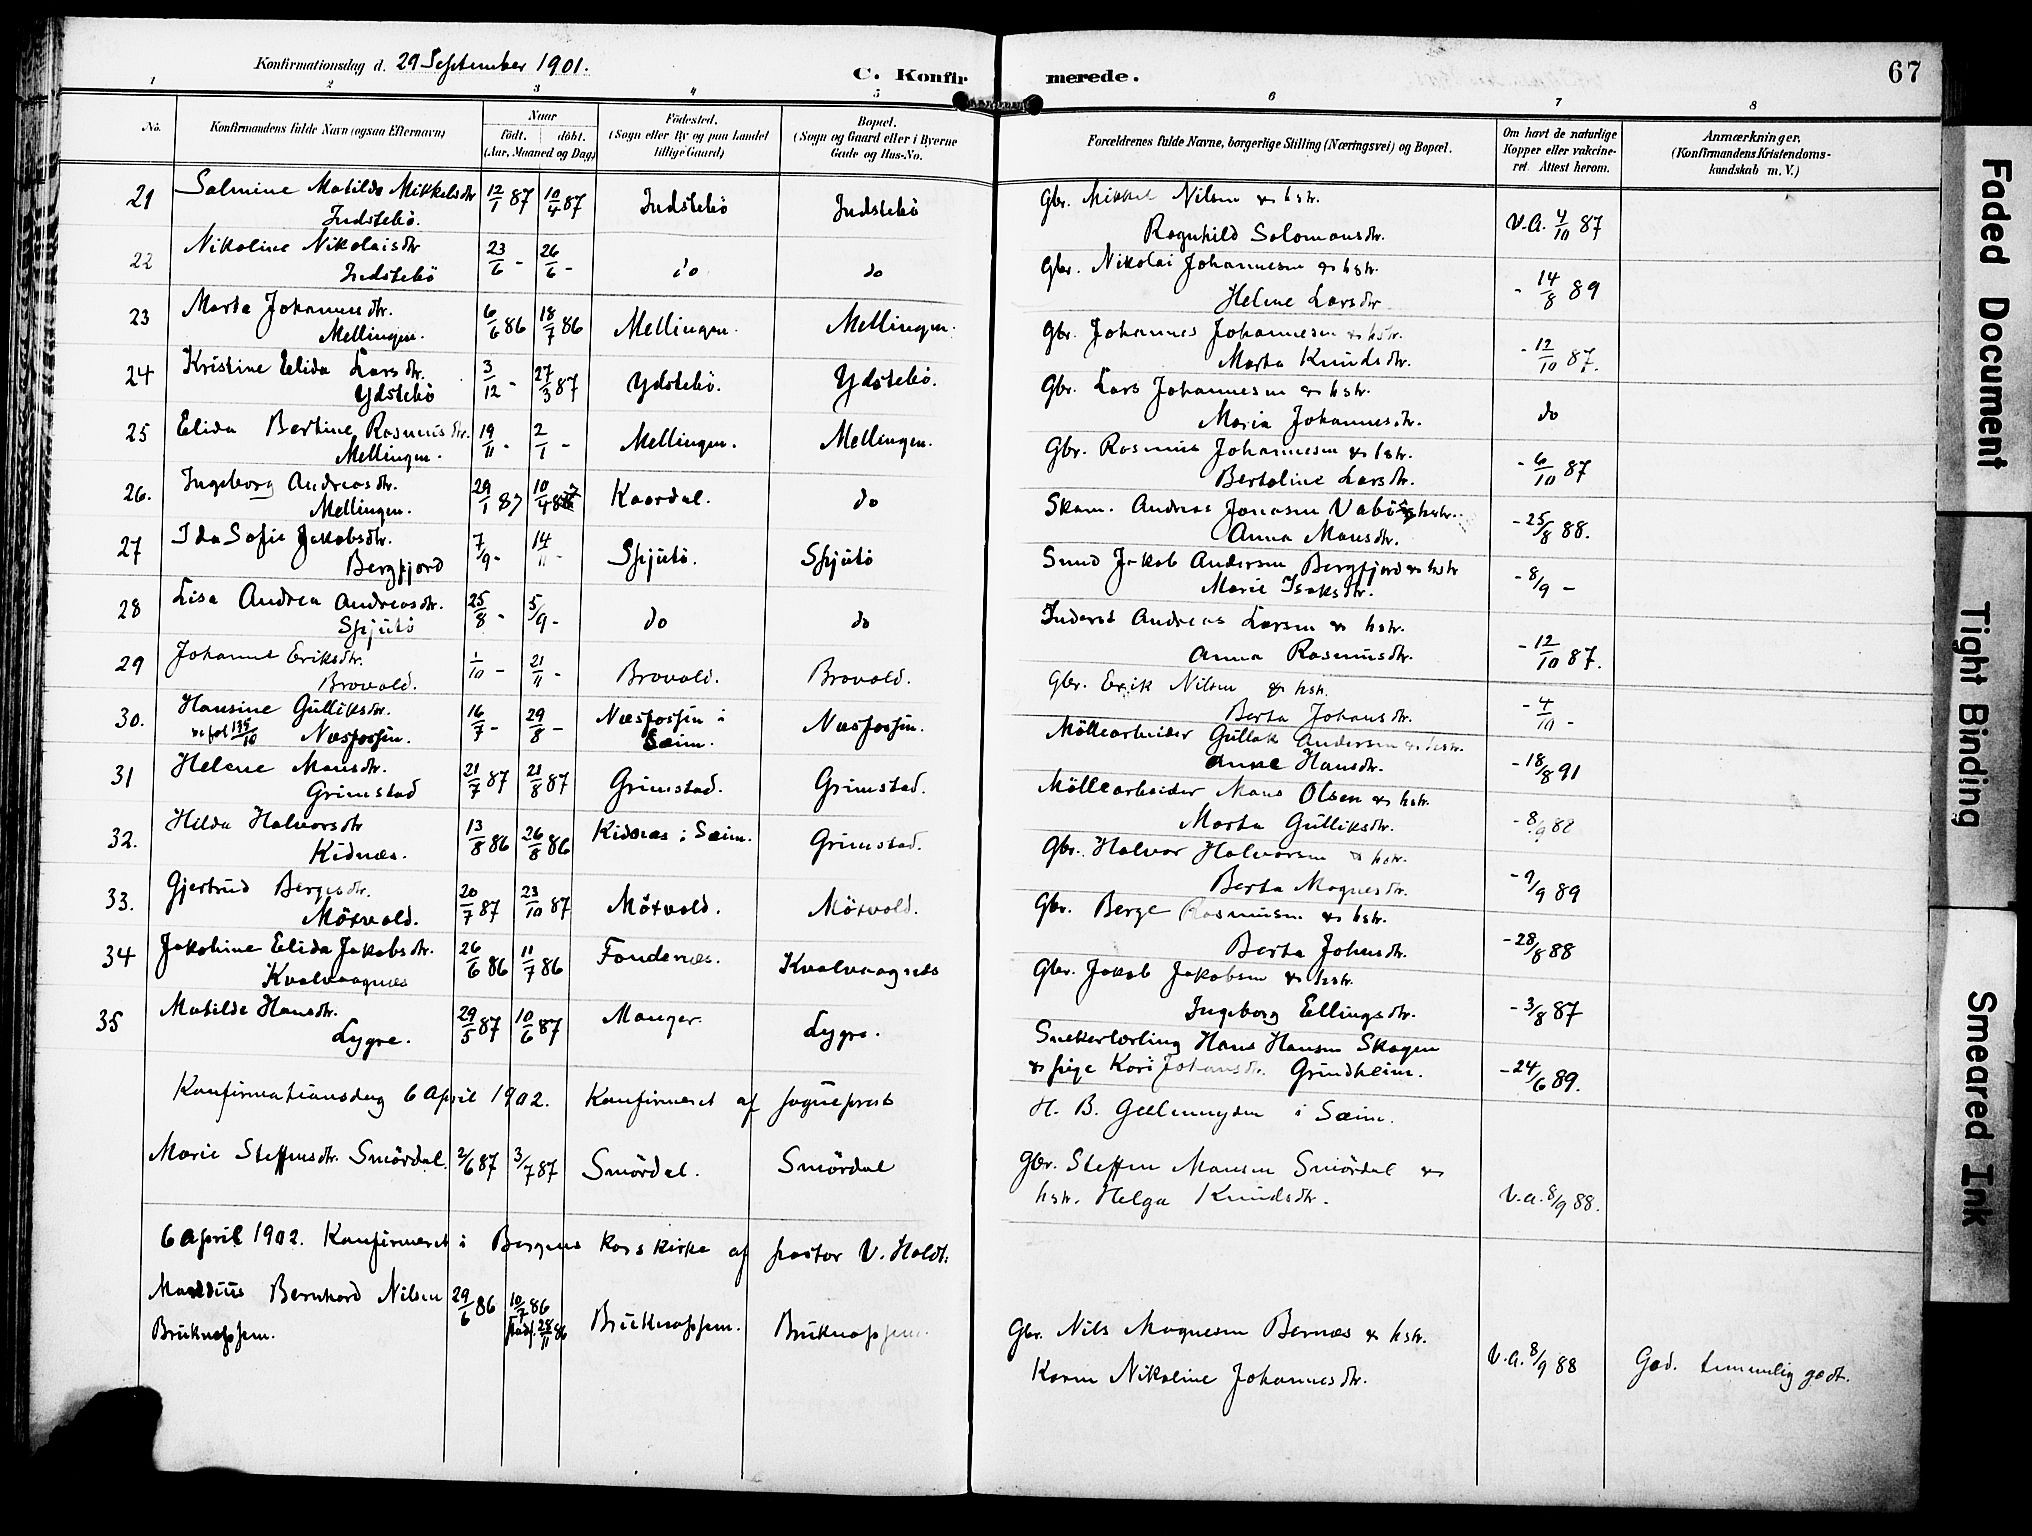 Konfirmationsdag d. 29 September 1901.
C. Konfirmerede.
67
1 2 3 4 5 6 7 8
No.
Konfirmandens fulde Navn (ogsaa Efternavn)
Naar
født. døbt.
(Aar, Maaned og Dag)
Fødested.
(Sogn eller By og paa Landet
tillige Gaard)
Bopæl.
(Sogn og Gaard eller i Byerne
Gade og Hus-No.
Forældrenes fulde Navne, borgerlige Stilling (Næringsvei) og Bopæl.
Om havt de naturlige
Kopper eller vakcine-
ret. Attest herom.
Anmærkninger.
(Konfirmandens Kristendoms-
kundskab m. V.)
21 Salmine Matilde Mikkelsdtr 12/1 87 10/4 87 Indstebö Indstebö Gbr. Mikkel Nilsen & hstr.
Indstebö. Ragnhild Salomonsdtr. V.A. 4/10 87
22 Nikoline Nikolaisdtr 23/6 - 26/6 - do do Gbr. Nikolai Johannesen & hstr.
Indstebö Helene Larsdtr - 14/8 89
23 Marta Johannesdtr. 6/6 86 18/7 86 Mellingen. Mellingen. Gbr. Johannes Johannesen & hstr.
Mellingen. Marta Knudsdtr. - 12/10 87.
24 Kristine Elida Larsdtr. 3/12 - 27/3 87 Ydstebö. Ydstebö. Gbr. Lars Johannesen & hstr.
Ydstebö Maria Johannesdtr. do
25 Elida Bertine Rasmusdtr. 19/11 - 2/1 - Mellingen. Mellingen. Gbr. Rasmus Johannesen & hstr.
Mellingen. Bertoline Larsdtr. - 6/10 87
26. Ingeborg Andreasdtr. 29/1 87 10/4 87 Kaardal. do Skom. Andreas Jonasen Vabö & hstr.
Mellingen. Anna Monsdtr. - 25/8 88.
27 Ida Sofie Jakobsdtr. 7/9 - 14/11 - Spjutö. Spjutö Smed Jakob Andersen Bergfjord & hstr
Bergfjord Marie Isaksdtr. - 8/9 -
28 Lisa Andrea Andreasdtr. 25/8 - 5/9 - do do Inderst Andreas Larsen & hstr.
Spjutö Anna Rasmusdtr. - 12/10 87.
29 Johanne Eriksdtr. 1/10 - 21/11 - Brovold. Brovold. Gbr. Erik Nilsen & hstr.
Brovold. Berta Johansdtr. - 4/10 -
30. Hansine Gulliksdtr. 16/7 - 29/8 - Næsfossen i Næsfossen. Möllearbeider Gullak Andersen & hstr.
Næsfossen. Sæim. Anne Hansdtr. - 18/8 91
31 Helene Monsdtr. 21/7 87 21/8 87 Grimstad. Grimstad. Möllearbeider Mons Olsen & hstr.
Grimstad Marta Gulliksdtr. - 8/9 88
32. Hilda Halvorsdtr 13/8 86 26/8 86 Kidnæs i Sæim. Grimstad. Gbr. Halvor Halvorsen & hstr.
Kidnæs. Berta Magnesdtr. - 9/9 89
33. Gjertrud Bergesdtr. 20/7 87 23/10 87 Mörvold. Mörvold. Gbr. Berge Rasmusen & hstr.
Mörvold. Berta Johansdtr. - 28/8 88
34 Jakobine Elida Jakobsdtr. 26/6 86 11/7 86 Fondenæs. Kvalvaagnæs Gbr. Jakob Jakobsen & hstr.
Kvalvaagnæs Ingeborg Ellingsdtr. - 3/8 87
35 Matilde Hansdtr. 29/5 87 10/6 87 Manger. Lygre. Snekkerlærling Hans Hansen Skagen
Lygre. & pige Kari Johansdtr. Grindheim. - 24/6 89.
Konfirmationsdag 6 April 1902. Konfirmeret af sogneprest H. B. Geelmuyden i Sæim.
Marie Steffensdtr. Smördal. 2/6 87 3/7 87 Smördal. Smördal Gbr. Steffen Monsen Smördal &
hstr. Helga Knudsdtr. V.A. 8/9 88.
6 April 1902. Konfirmeret i Bergens Korskirke af pastor V. Holdt.
Bernhard Nilsen 29/6 86 10/7 86 Bruknappen. Bruknappen. Gbr. Nils Magnesen Bernæs & hstr.
Bruknappen. 28/11 86 Karen Nikoline Johannesdtr. V.A. 8/9 88 God. temmelig godt.
Faded Document
Tight Binding
Smeared Ink